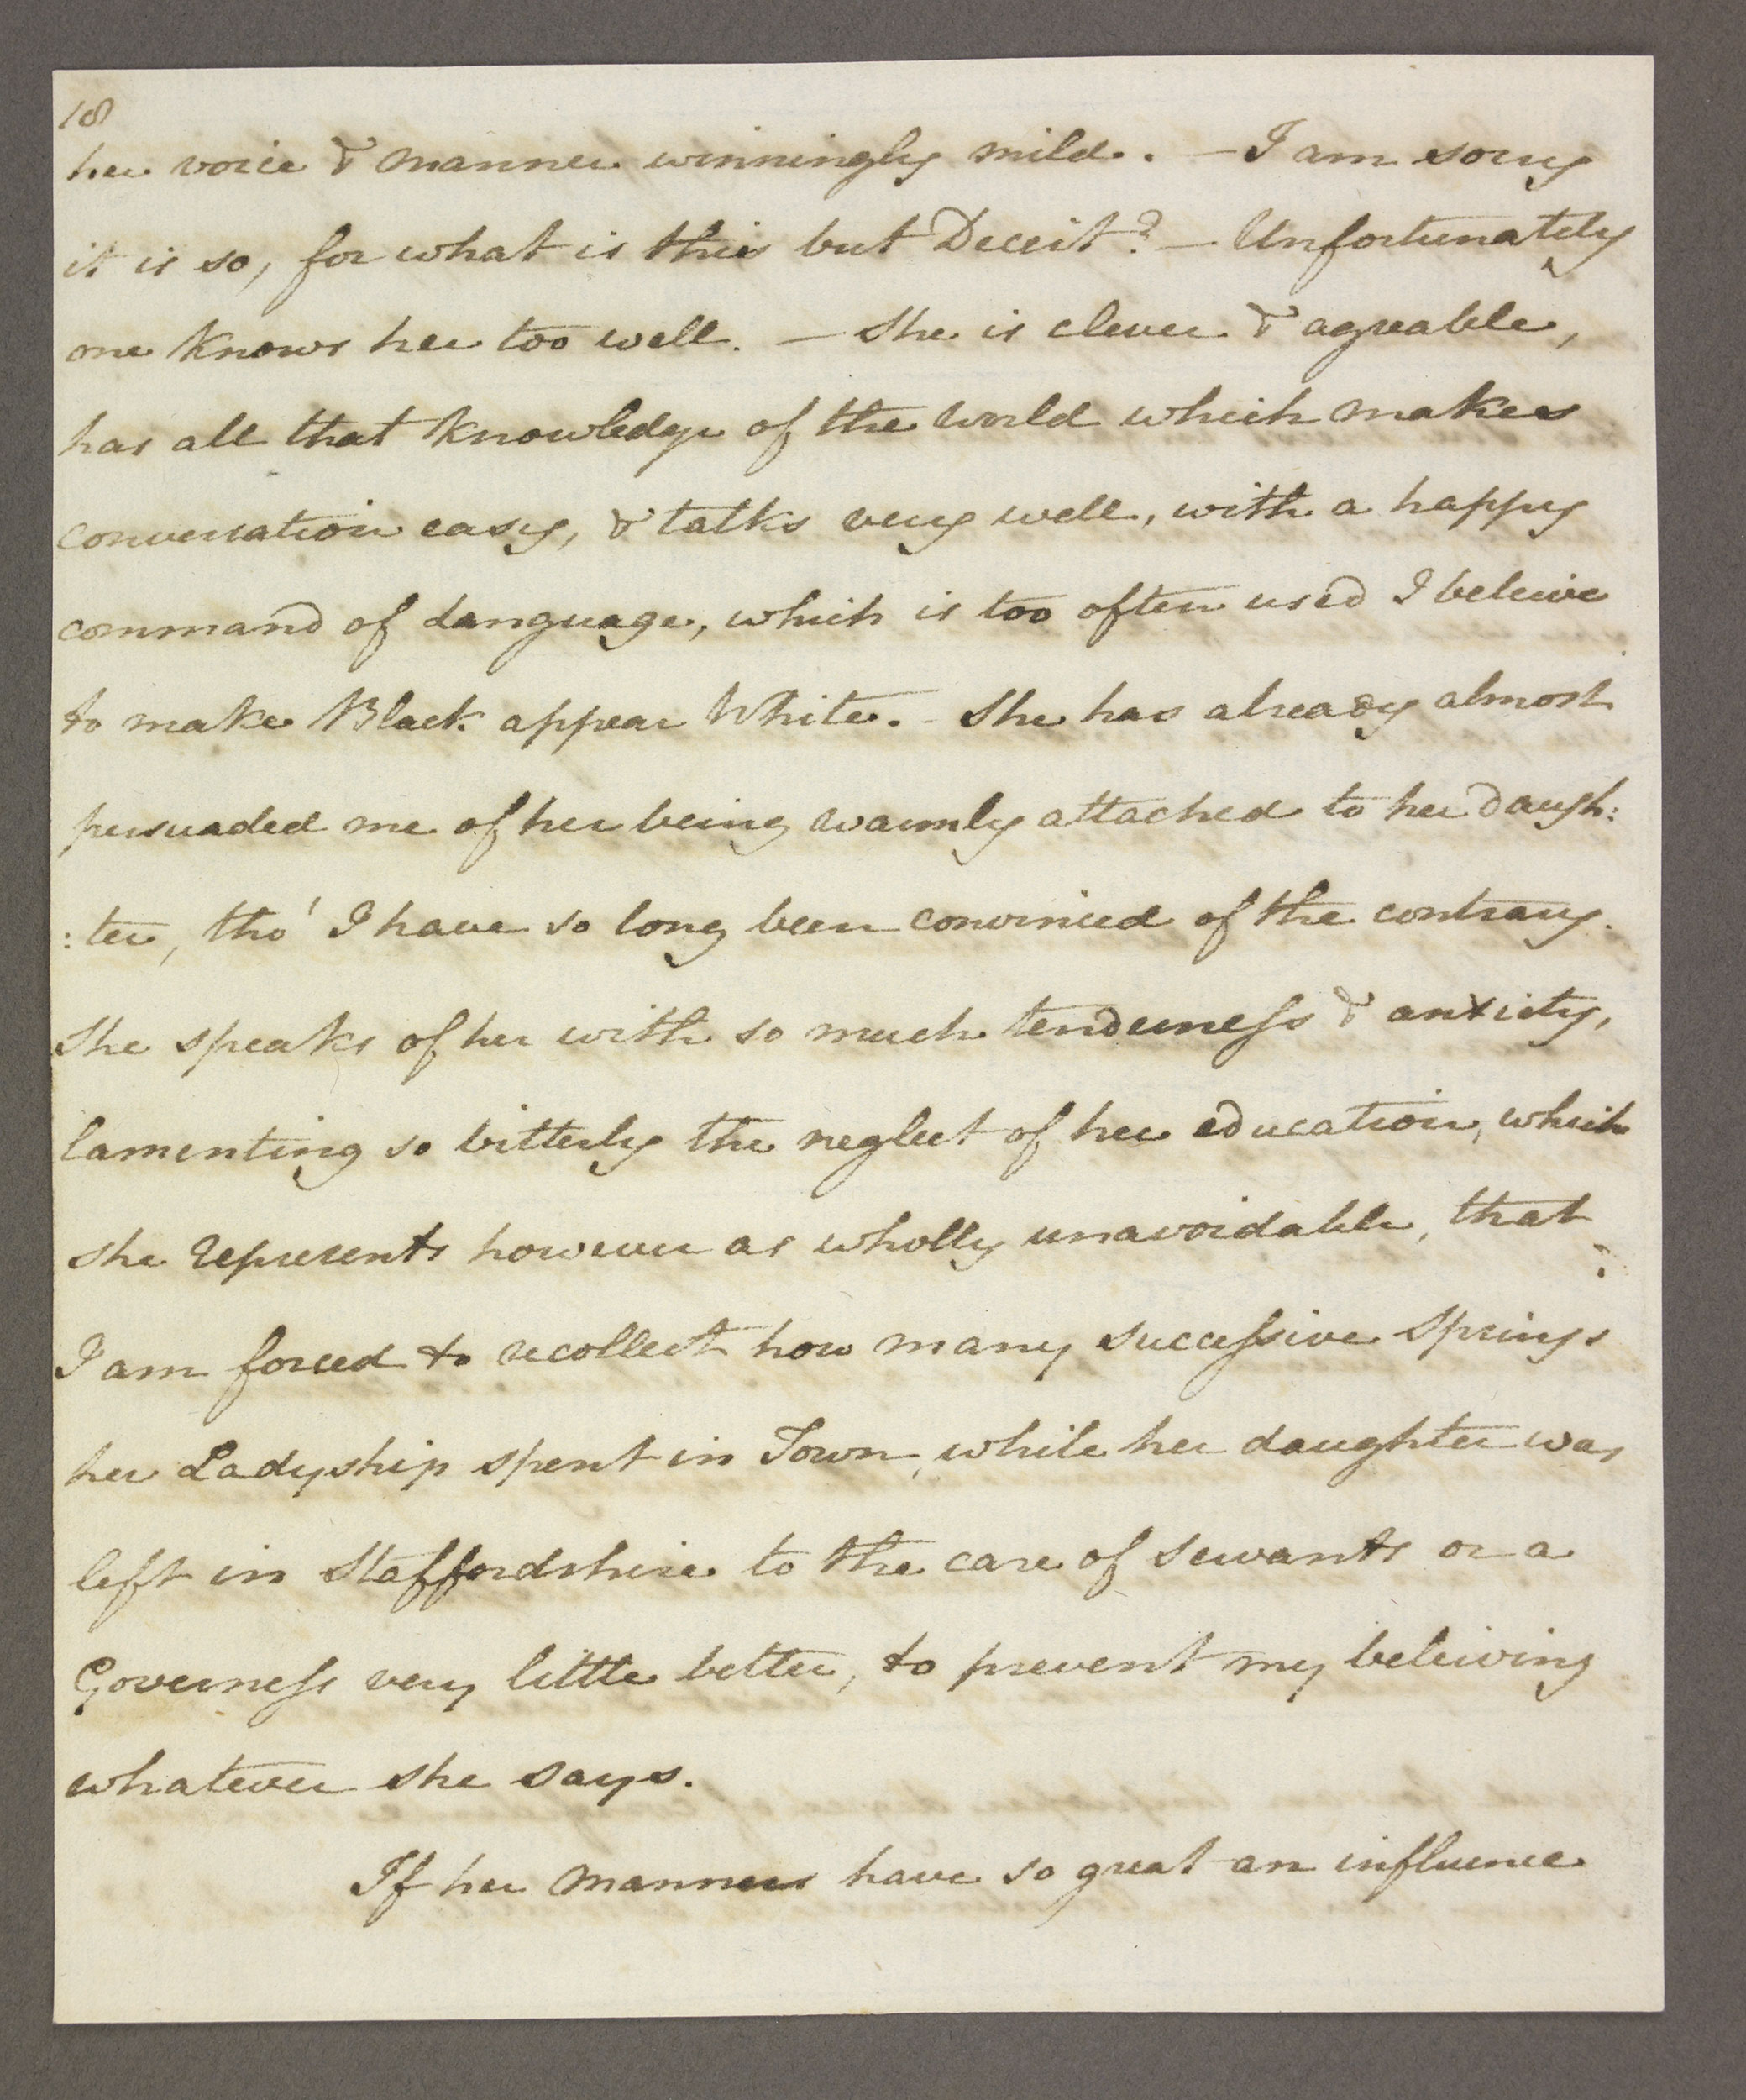 18
her voice & manner winningly mild. — I am sorry
it is so, for what is this but Deceit? — Unfortunately
one knows her too well. — She is clever & agreable,
has all that knowledge of the world which makes
conversation easy, & talks very well, with a happy
command of Language, which is too often used I beleive
to make Black appear White. - She has already almost
persuaded me of her being warmly attached to her daugh:
:ter, tho' I have so long been convinced of the contrary.
She speaks of her with so much tenderness & anxiety,
lamenting so bitterly the neglect of her education, which
she represents however as wholly unavoidable, that
I am forced to recollect how many successive Springs
her Ladyship spent in Town, while her daughter was
left in Staffordshire to the care of Servants or a
Governess very little better, to prevent my beleiving
whatever she says.
If her manners have so great an influence